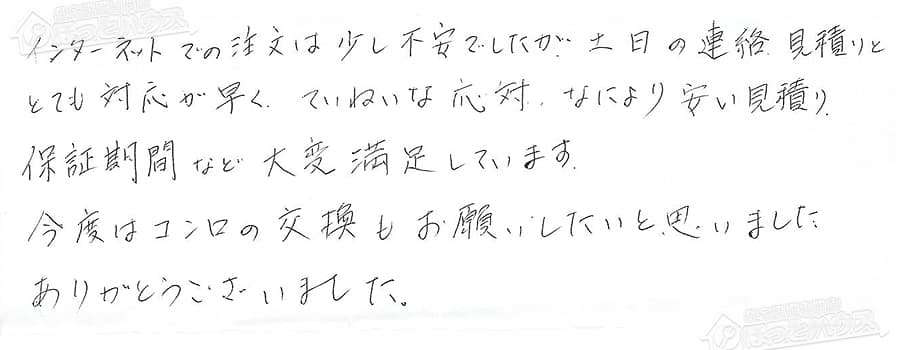 インターネットでの注文は少し不安でしたが、土日の連絡、見積りと
とても対応が早く、ていねいな応対、なにより安い見積り、
保証期間など大変満足しています。
今度はコンロの交換もお願いしたいと思いました
ありがとうございました。